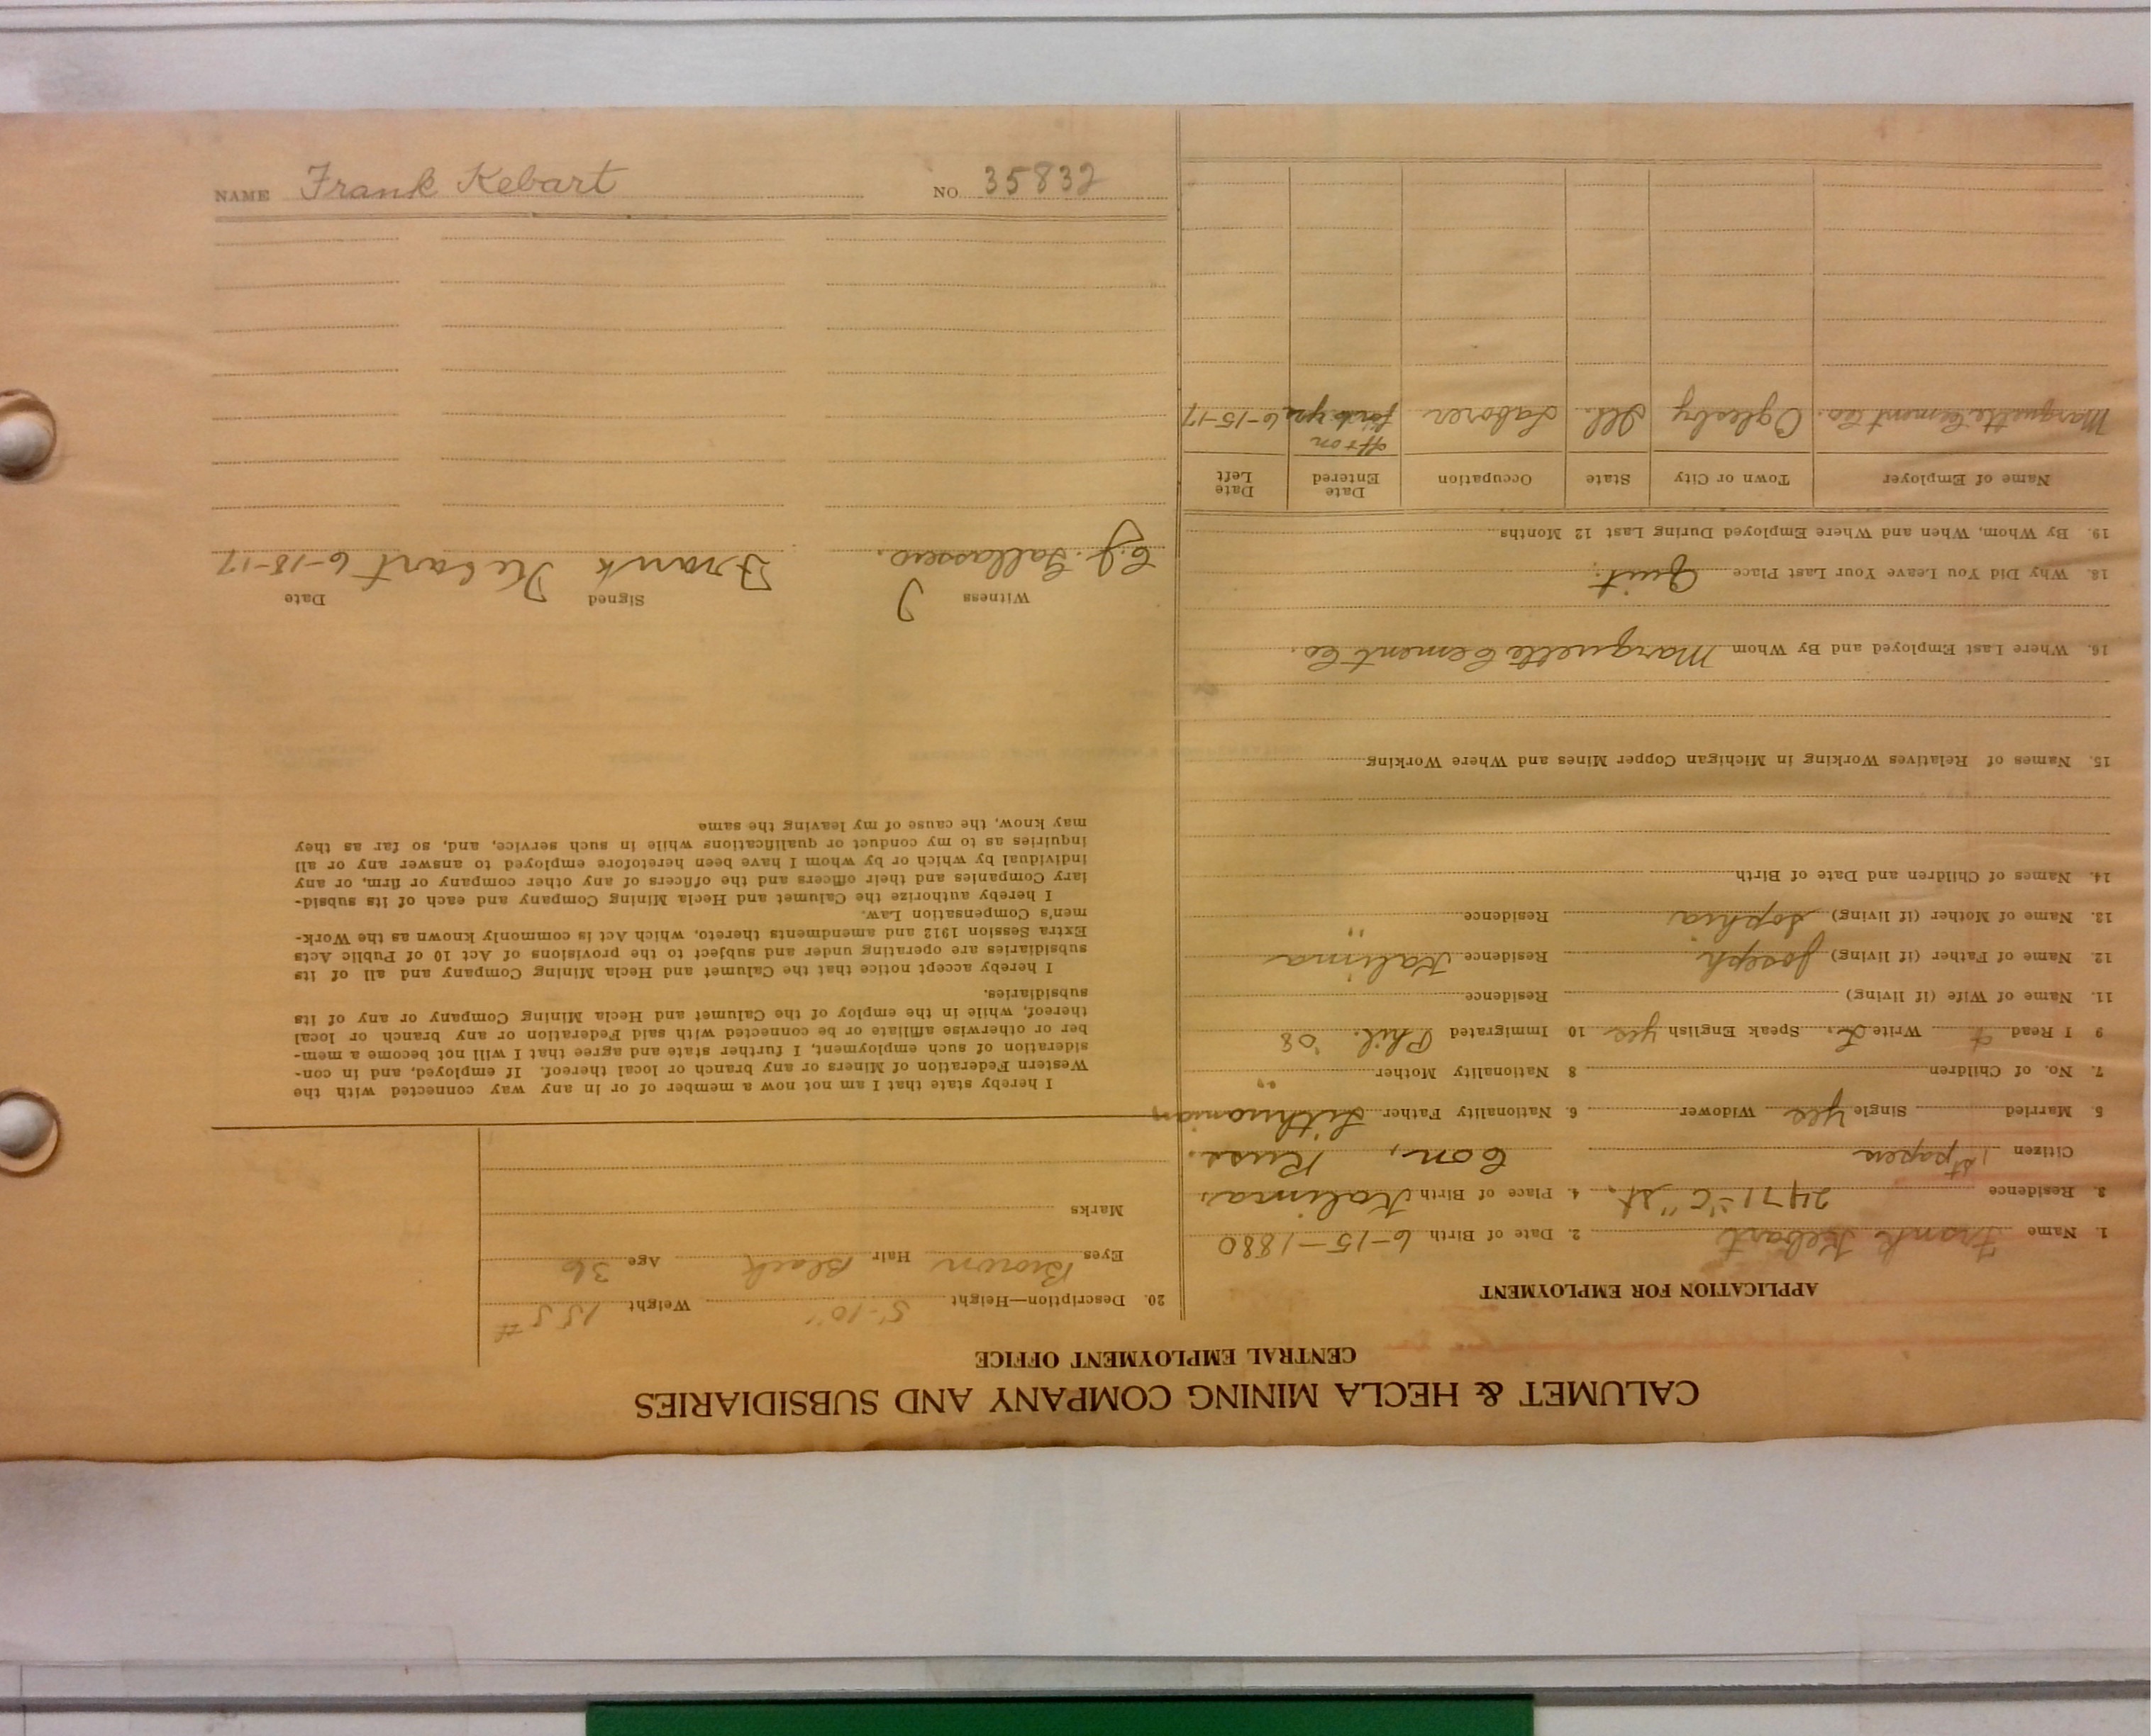 CALUMET & HECLA MINING COMPANY AND SUBSIDIARIES
CENTRAL EMPLOYMENT OFFICE
APPLICATION FOR EMPLOYMENT
1. Name Frank Kebart 2. Date of Birth 6-15-1880
3. Residence 2471-"C" St. 4. Place of Birth Kalima,
Citizen 1st papers Con, Russ.
5. Married Single Yes Widower 6. Nationality Father Lithuanian
7. No. of Children 8 Nationality Mother "
9 I Read Write Speak English yes 10 Immigrated Phil. '08
11. Name of Wife (if living) Residence
12. Name of Father (if living) Joseph Residence Kalima
13. Name of Mother (if living) Sophia Residence "
14. Names of Children and Date of Birth
15. Names of Relatives Working in Michigan Copper Mines and Where Working
16. Where Last Employed and By Whom Marquette Cement Co.
18. Why Did You Leave Your Last Place Quit.
19. By Whom, When and Where Employed During Last 12 Months
Name of Employer Town or City State Occupation Date Entered Date Left
Marquette Cement Co. Oglesby Ill. Laborer off & on for 6 yrs 6-15-17
20. Description—Height 5-10" Weight 155#
Eyes Brown Hair Black Age 36
Marks
I hereby state that I am not now a member of or in any way connected with the
Western Federation of Miners or any branch or local thereof. If employed, and in con-
sideration of such employment, I further state and agree that I will not become a mem-
ber or otherwise affiliate or be connected with said Federation or any branch or local
thereof, while in the employ of the Calumet and Hecla Mining Company or any of its
subsidiaries.
I hereby accept notice that the Calumet and Hecla Mining Company and all of its
subsidiaries are operating under and subject to the provisions of Act 10 of Public Acts
Extra Session 1912 and amendments thereto, which Act is commonly known as the Work-
men's Compensation Law.
I hereby authorize the Calumet and Hecla Mining Company and each of its subsid-
iary Companies and their officers and the officers of any other company or firm, or any
individual by which or by whom I have been heretofore employed to answer any or all
inquiries as to my conduct or qualifications while in such service, and, so far as they
may know, the cause of my leaving the same
Witness Signed Date
C.J. Frank Kebart 6-18-17
NAME Frank Kebart NO. 35832